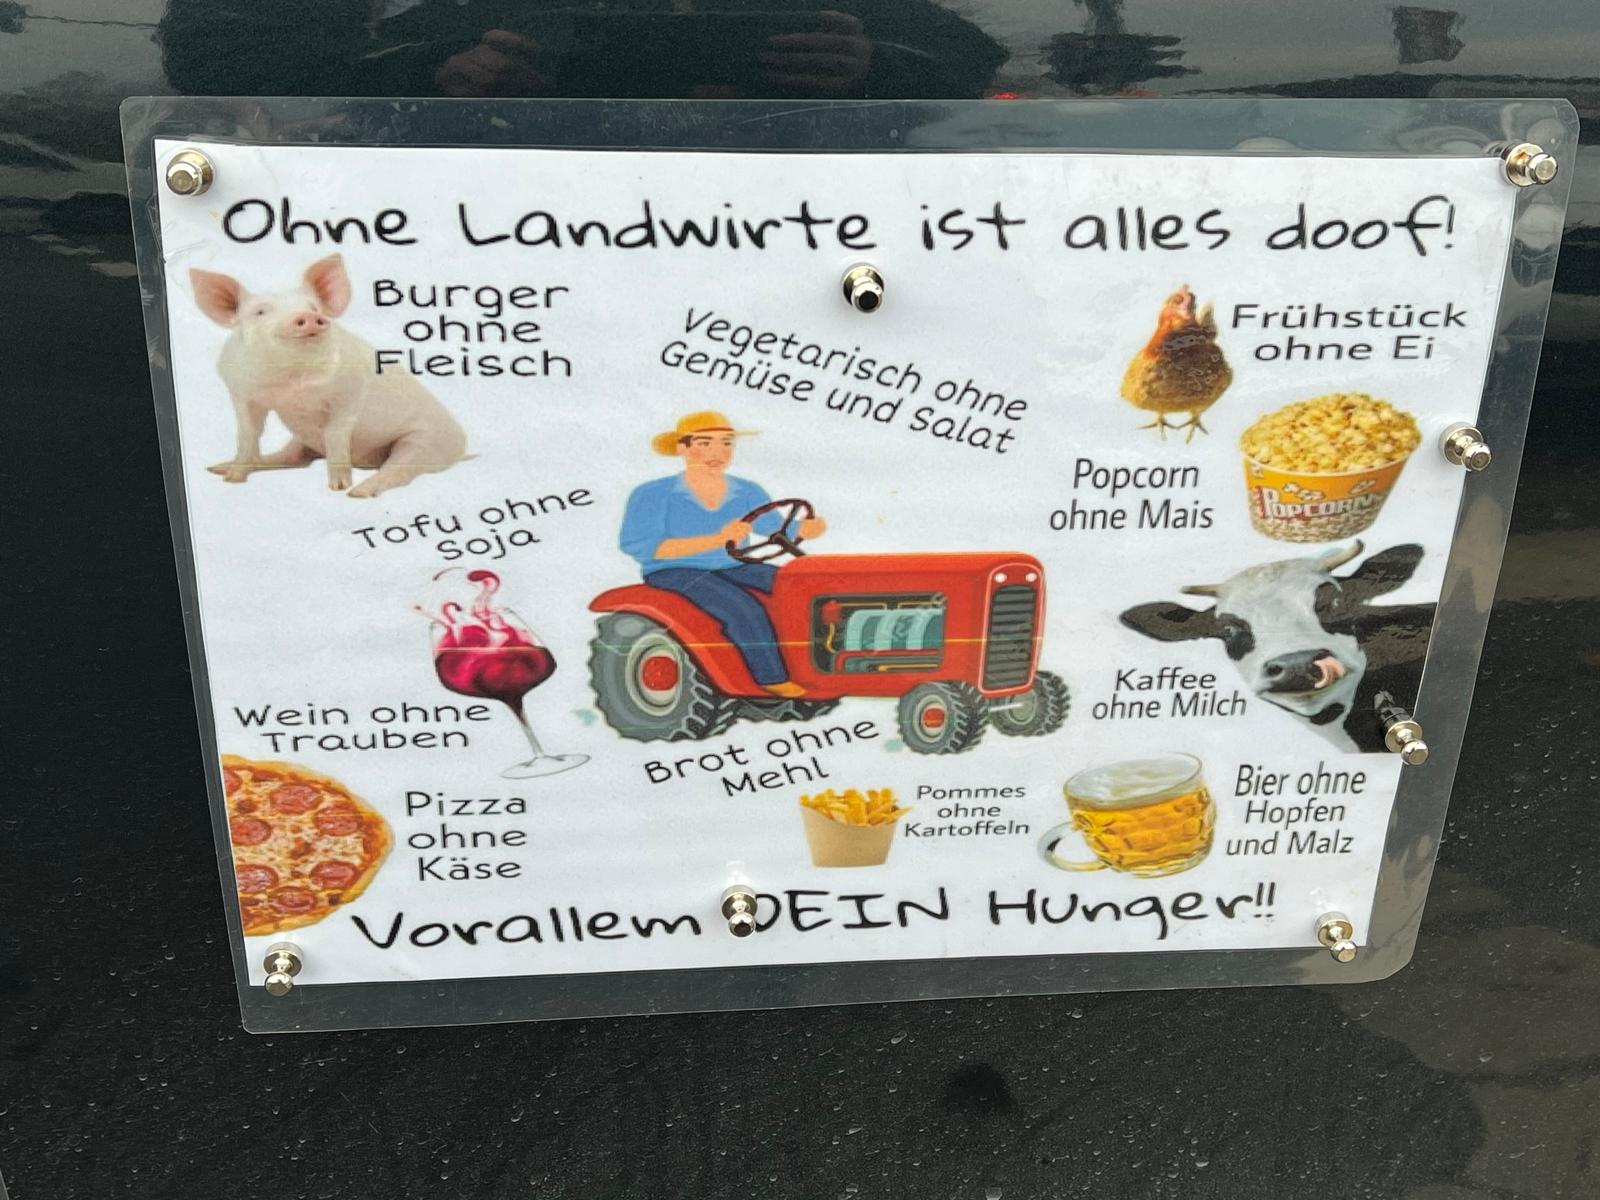 Ohne Landwirte ist alles doof!
Burger
ohne
Fleisch
Vegetarisch ohne
Gemüse und Salat
Frühstück
ohne Ei
Popcorn
ohne Mais
POPCORN
Tofu ohne
Soja
Kaffee
ohne Milch
Wein ohne
Trauben
Brot ohne
Mehl
Pizza
ohne
Käse
Pommes
ohne
Kartoffeln
Bier ohne
Hopfen
und Malz
Vorallem DEIN Hunger!!